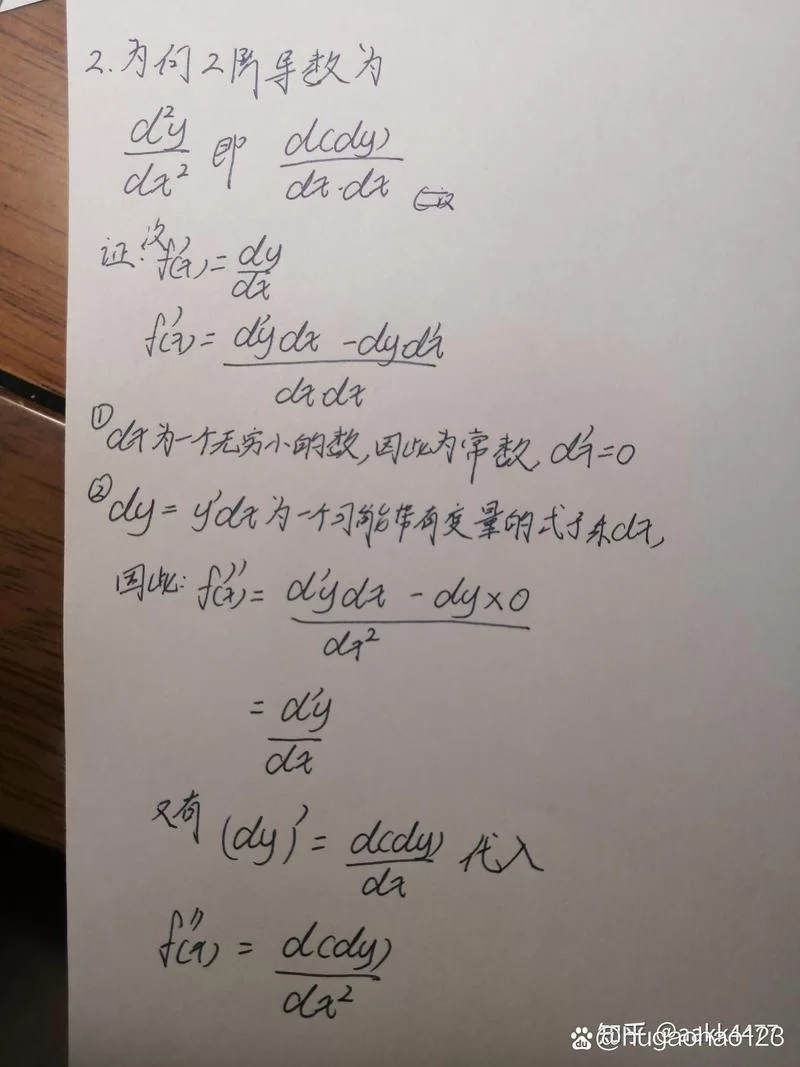 2. 为何2阶导数为
d²y/dx² 即 d(dy)/dx·dx
证: 设 f'(x) = dy/dx
f''(x) = d'y dx - dy d'x / dx dx
① dx为一个无穷小的数,因此为常数, d'x=0
② dy = y'dx为一个可能带有变量的式子乘dx,
因此: f''(x) = d'y dx - dy×0 / dx²
= d'y/dx
又有 (dy)' = d(dy)/dx 代入
f''(x) = d(dy)/dx²
知乎 @aakk4477
@hugaohao123